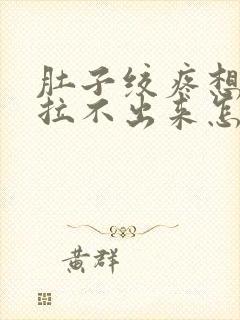 肚子绞疼想
拉不出来怎
黄群